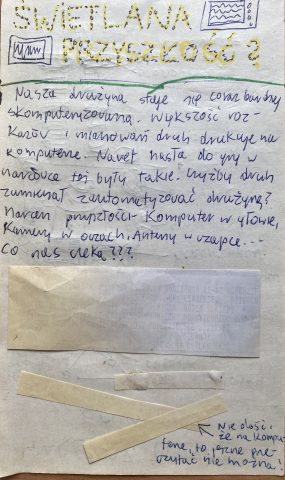 ŚWIETLANA
PRZYSZŁOŚĆ?
Nasza drużyna staje się coraz bardziej
skomputeryzowana. Większość roz-
kazów i mianowań druh drukuje na
komputerze. Nawet hasła do gry w
też były takie. Czyżby druh
zamierzał zautomatyzować drużynę?
Harcerz przyszłości - Komputer w głowie,
Kamery w oczach, Anteny w czapce...
Co nas czeka???
Nie dość,
że na kompu-
terze, to jeszcze prze-
czytać nie można!